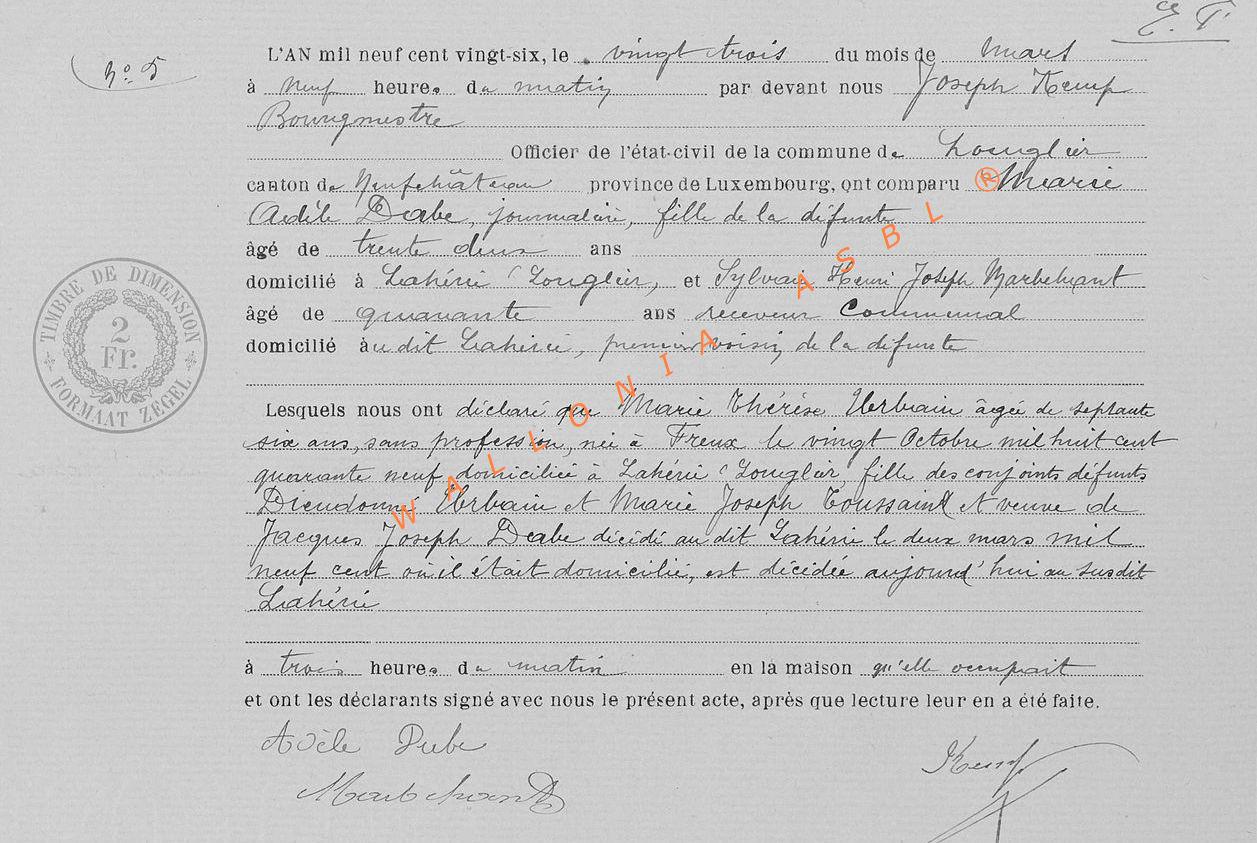 E. T.
N° 5
L'AN mil neuf cent vingt-six, le vingt trois du mois de mars
à neuf heures du matin par devant nous Joseph Kemp
Bourgmestre
Officier de l'état-civil de la commune de Longlier
canton de Neufchâteau province de Luxembourg, ont comparu Marie
Adèle Dabe, journalière, fille de la défunte
âgé de trente deux ans
domicilié à Lahérie Longlier, et Sylvain Henri Joseph
âgé de quarante ans receveur Communal
domicilié àu dit Lahérie, premier voisin de la défunte
Lesquels nous ont déclaré que Marie Thérèse Urbain âgée de septante
six ans, sans profession, née à Freux le vingt Octobre mil huit cent
quarante neuf domiciliée à Lahérie Longlier, fille des conjoints défunts
Dieudonné Urbain et Marie Joseph Toussaint et veuve de
Jacques Joseph Dabe décédé au dit Lahérie le deux mars mil
neuf cent où il était domicilié, est décédée aujourd'hui au susdit
Lahérie
à trois heures du matin en la maison qu'elle occupait
et ont les déclarants signé avec nous le présent acte, après que lecture leur en a été faite.
Adèle Dabe
TIMBRE DE DIMENSION
2
Fr.
FORMAAT ZEGEL
® WALLONIA ASBL